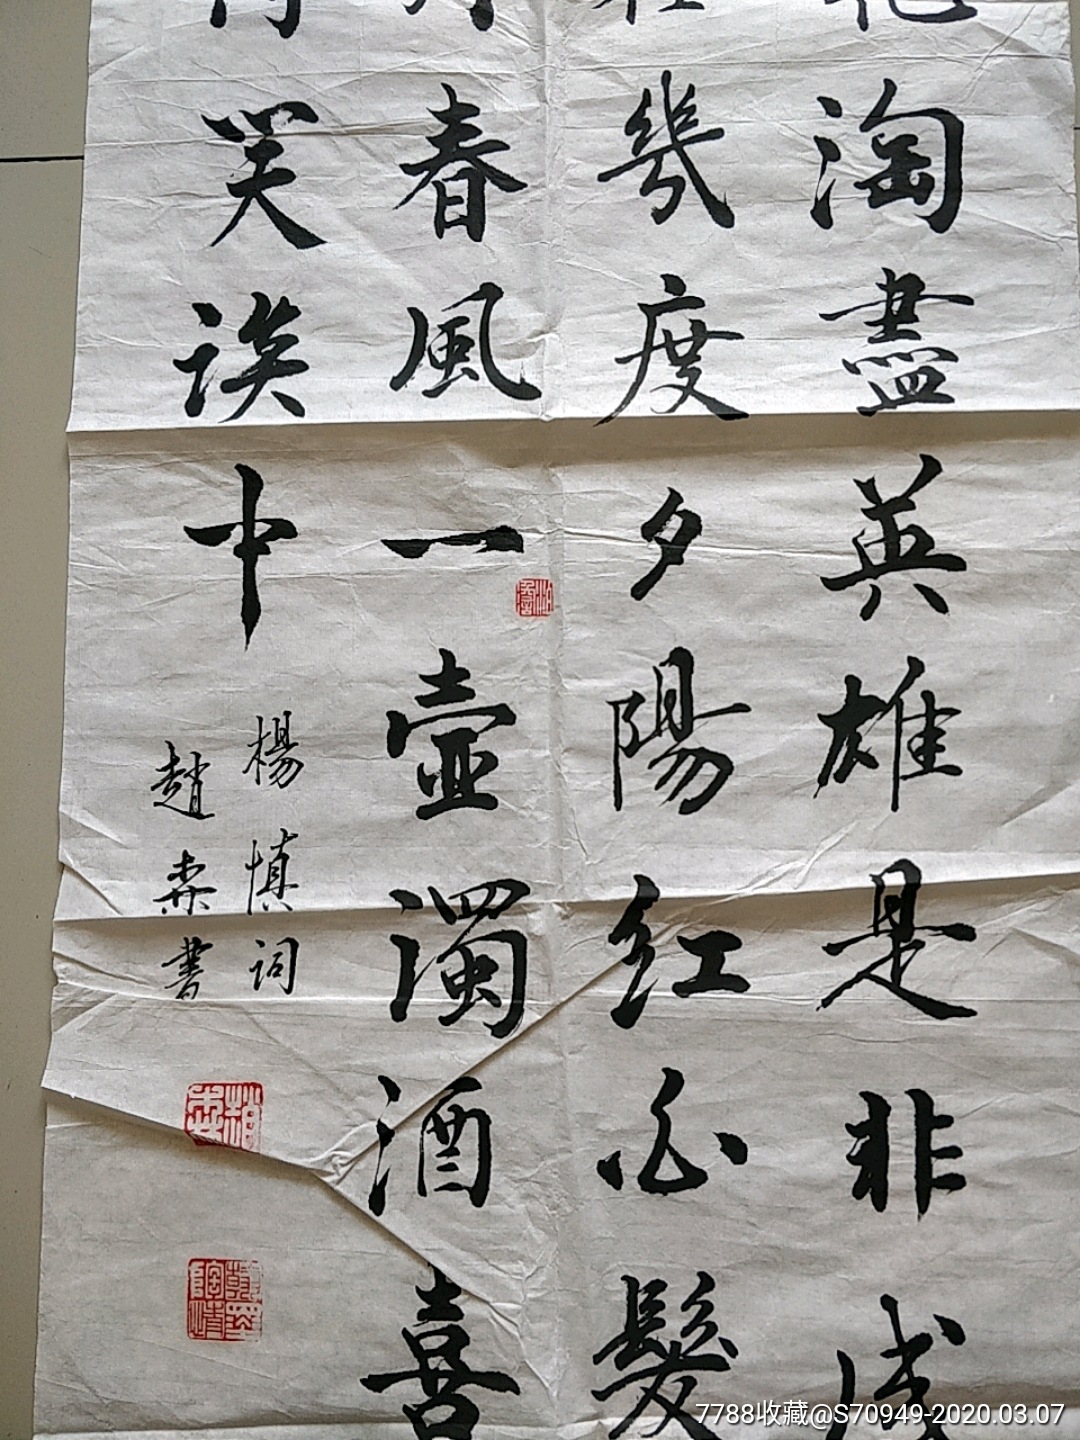 花淘盡英雄是非成
在幾度夕陽紅白髮
月春風一壺濁酒喜
付笑談中
楊慎詞
趙書
7788收藏@S70949-2020.03.07